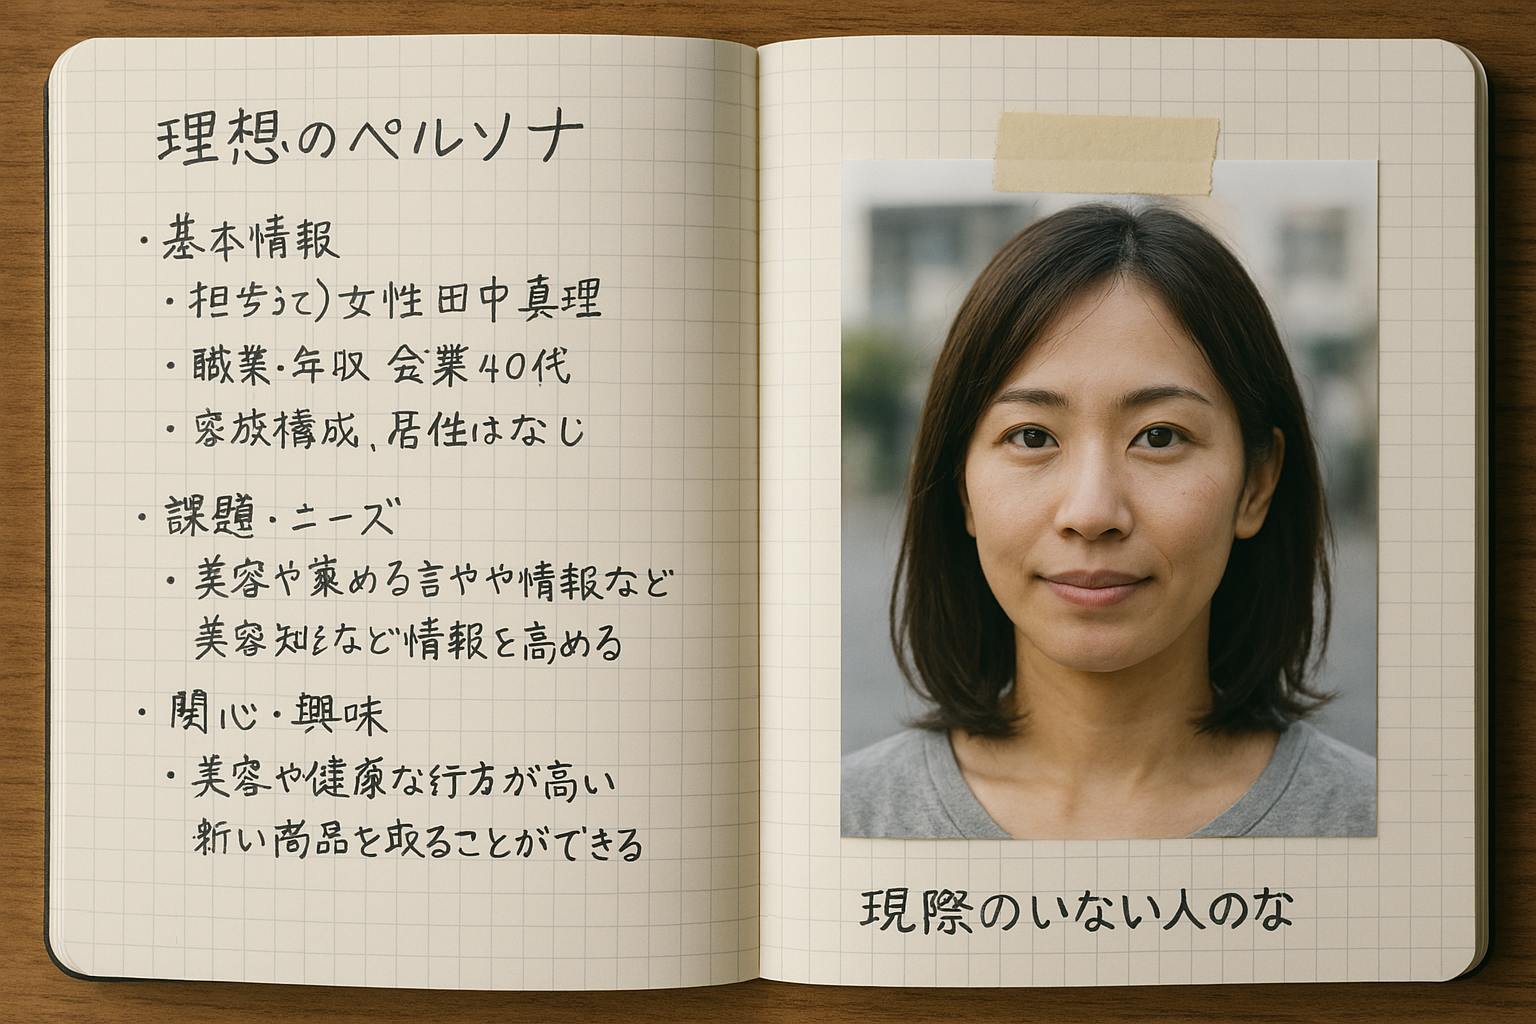 理想のペルソナ
・基本情報
・担ちうて)女性 田中真理
・職業・年収 会業40代
・容族構成、居性はなじ
・課題・ニーズ
・美容や薬める言やや情報など
美容知など情報を高める
・関心・興味
・美容や健康な行方が高い
新い商品を取ることができる
現際のいない人のな